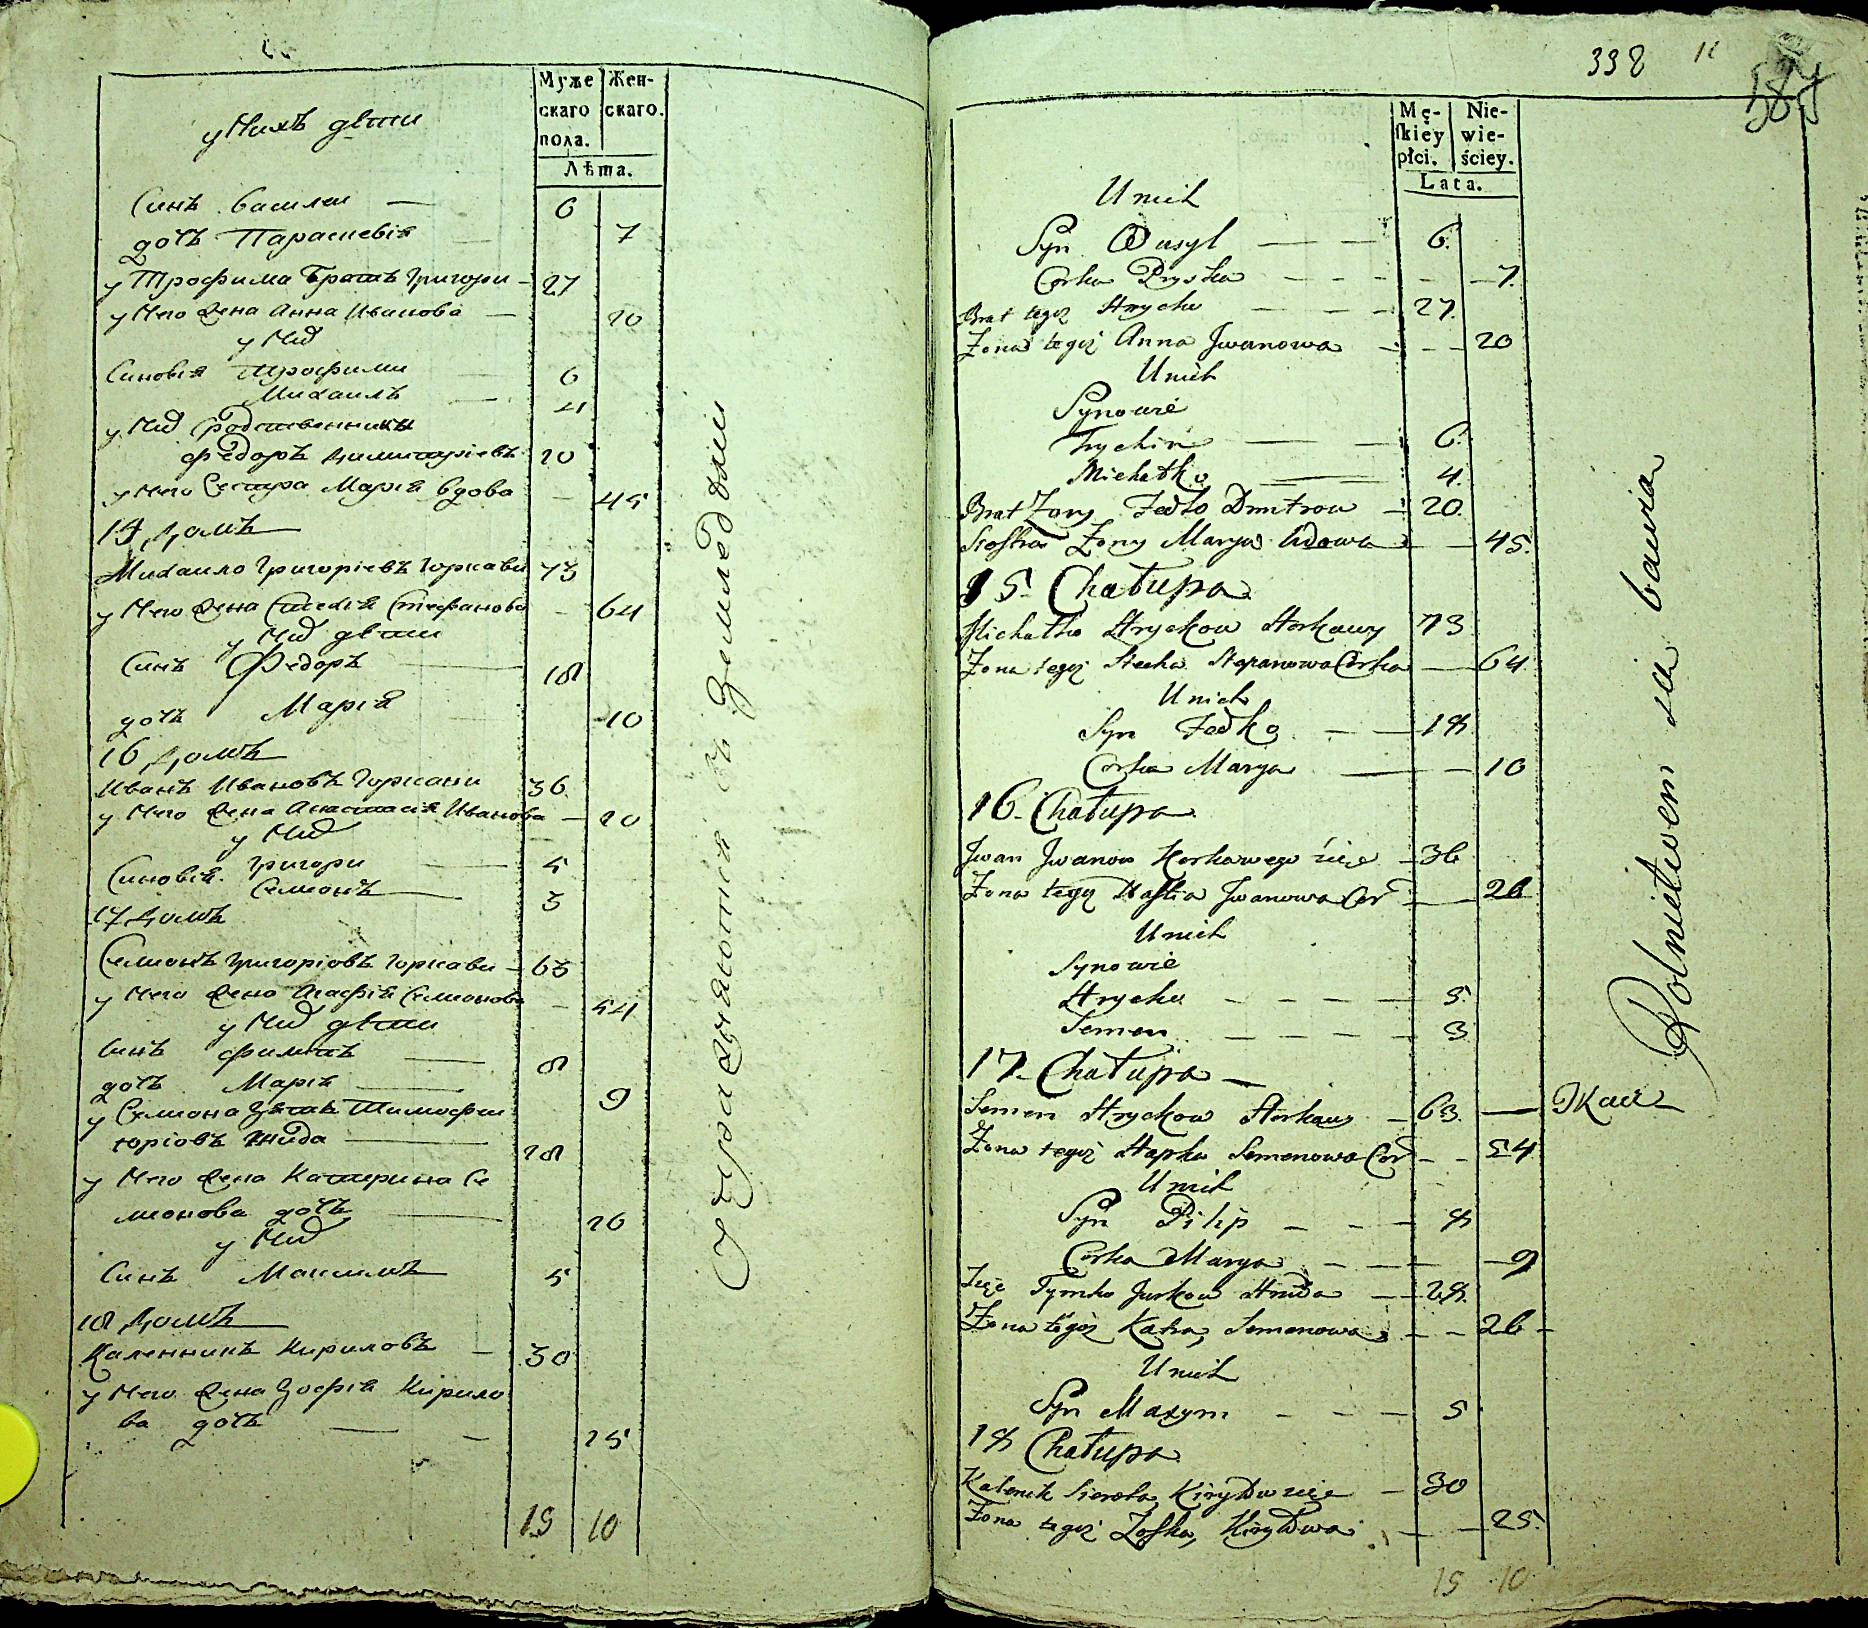 Муже Жен-
скаго скаго.
пола.
Лѣта.
у Нихъ дѣти
Синъ Василеи — 6
дочъ Параскевія — 7
у Трофима Братъ Григори — 27
у Него Жена Анна Иванова — 20
у Них
Синовія Трофими — 6
Михаилъ — 4
у Них родственники
Федоръ Димитріевъ 20
у Него Сестра Марія вдова — 45
15 Домъ
Михаило Григоріевъ Горкави 73
у Него Жена Стехія Стефанова — 64
у Них дѣти
Синъ Федоръ — 18
дочъ Марія — 10
16 Домъ
Иванъ Ивановъ Горкави 36
у Него Жена Анастасія Иванова — 20
у Них
Синовія Григори — 5
Семионъ — 3
17 Домъ
Семионъ Григоріовъ Горкави — 63
у Него Жена Агафія Семионова — 54
у Них дѣти
Синъ Филипъ — 8
дочъ Марія — 9
у Семиона Зять Тимофеи
юріовъ Гнида — 28
у Него Жена Катерина Се
мионова дочъ — 26
у Них
Синъ Максимъ 5
18 Домъ
Каленникъ Кириловъ — 30
у Него Жена Зофія Кирило
ва дочъ — 25
15 10
упражняются въ Земледѣлии
338
Mę- Nie-
skiey wie-
płci. ściey.
Lata.
U nich
Syn Wasyl — — 6.
Corka Pryska — — 7.
Brat tegoż Hrycko — — 27.
Żona tegoż Anna Jwanowa — — 20
U nich
Synowie
Trochim — — 6.
Michałko — 4.
Brat Żony Fedko Dmitrow — 20.
Siostra Żony Marya Wdowa — 45.
15. Chałupa
Michałko Hryckow Horkawy 73
Żona tegoż Stecha Stepanowa Corka — 64.
U nich
Syn Fedko — — 18.
Corka Marya — — 10
16. Chałupa
Jwan Jwanow Horkawego zięć — 36
Żona tegoż Nastia Jwanowa Cor — 20
U nich
Synowie
Hrycko — — — 5.
Semen — — — 3
17. Chałupa —
Semen Hryckow Horkawy — 63. —
Żona tegoż Hapka Semenowa Cor — — 54.
U nich
Syn Pilip — — — 8
Corka Marya — — — 9
Zięć Tymko Jurkow Hnida — — 28.
Żona tegoż Katra, Semenowa — — 26 —
U nich
Syn Maxym — — — 5
18 Chałupa
Kalenik Sierota Kiryłow zięć — 30
Żona tegoż Zoska, Kiryłowa — — 25.
15 10
Rolnictwem się bawią